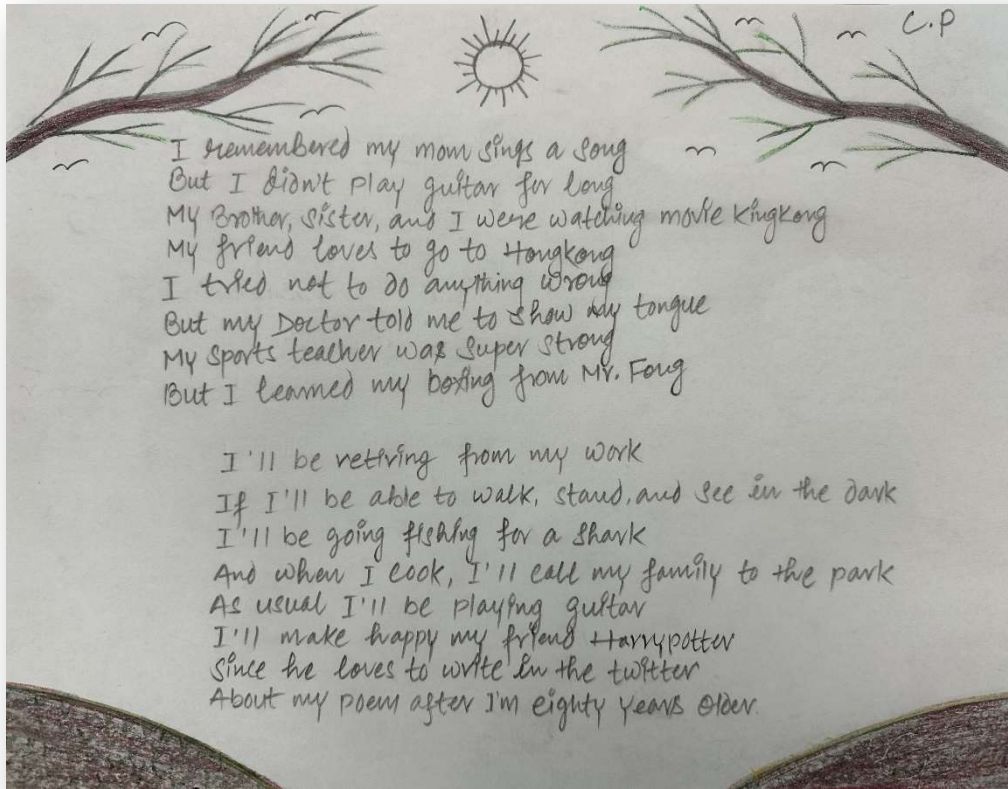 C.P
I remembered my mom sings a song
But I didn't play guitar for long
My Brother, sister, and I were watching movie kingkong
My friend loves to go to Hongkong
I tried not to do anything wrong
But my Doctor told me to show my tongue
My sports teacher was super strong
But I learned my boxing from Mr. Fong
I'll be retiring from my work
If I'll be able to walk, stand, and see in the dark
I'll be going fishing for a shark
And when I cook, I'll call my family to the park
As usual I'll be playing guitar
I'll make happy my friend Harrypotter
Since he loves to write in the twitter
About my poem after I'm eighty years older.